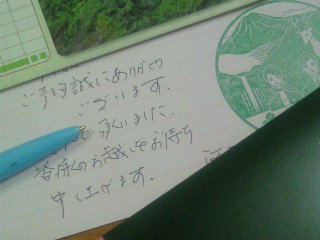 ご予約誠にありがとう
ございます。
承りました。
皆様のお越しをお待ち
申し上げます。